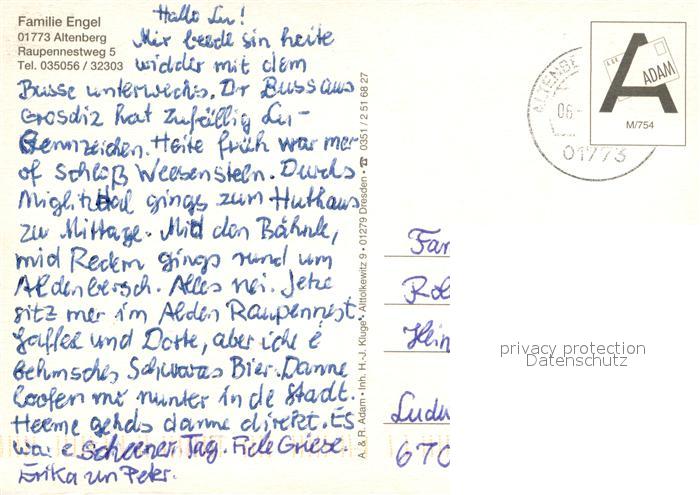 Familie Engel
01773 Altenberg
Raupennestweg 5
Tel. 035056 / 32303
Hallo Lu!
Mir beede sin heite
widder mit dem
Busse unterwechs. Dr Buss aus
Grosdiz hat zufällig Lu-
Gennzeichen. Heite früh war mer
of Schloß Weesenstein. Durchs
Miglitzdal gings zum Huthaus
zu Mittage. Mid den Bähnle,
mid Redern gings rund um
Aldenbersch. Alles nei. Jetze
sitz mer im Alden Raupennest.
Gaffee und Dorte, aber iche e
behmsches Schwarzes Bier. Danne
loofen mr nunter in de Stadt.
Heeme gehds danne direkt. Es
war e scheener Tag. Fiele Griese.
Erika un Peter.
A. & R. Adam • Inh. H.-J. Kluge • Alttolkewitz 9 • 01279 Dresden • ☎ 0351 / 2 51 68 27
ALTENBE
06
01773
A
ADAM
M/754
Fam
Rol
Hein
Ludw
670
privacy protection
Datenschutz